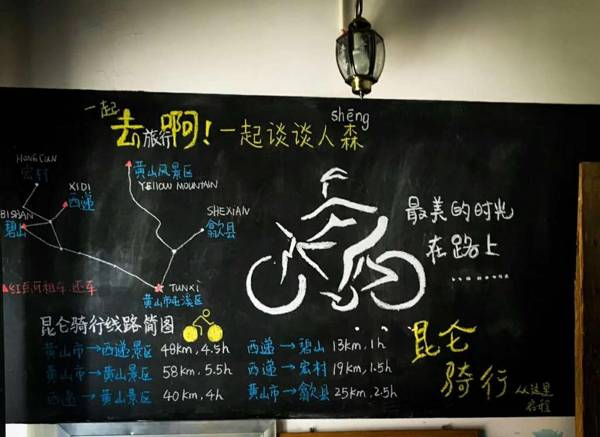 一起
去旅行啊！一起谈谈人森
shēng
HONGCUN
宏村
XIDI
西递
BISHAN
碧山
黄山风景区
YELLOW MOUNTAIN
SHEXIAN
歙县
TUNXI
黄山市屯溪区
红点可租车、还车
最美的时光
在路上
............
昆仑骑行线路简图
黄山市→西递景区 48km, 4.5h
黄山市→黄山景区 58km, 5.5h
西递→黄山景区 40km, 4h
西递→碧山 13km, 1h
西递→宏村 19km, 1.5h
黄山市→歙县 25km, 2.5h
昆仑
骑行
从这里
启程